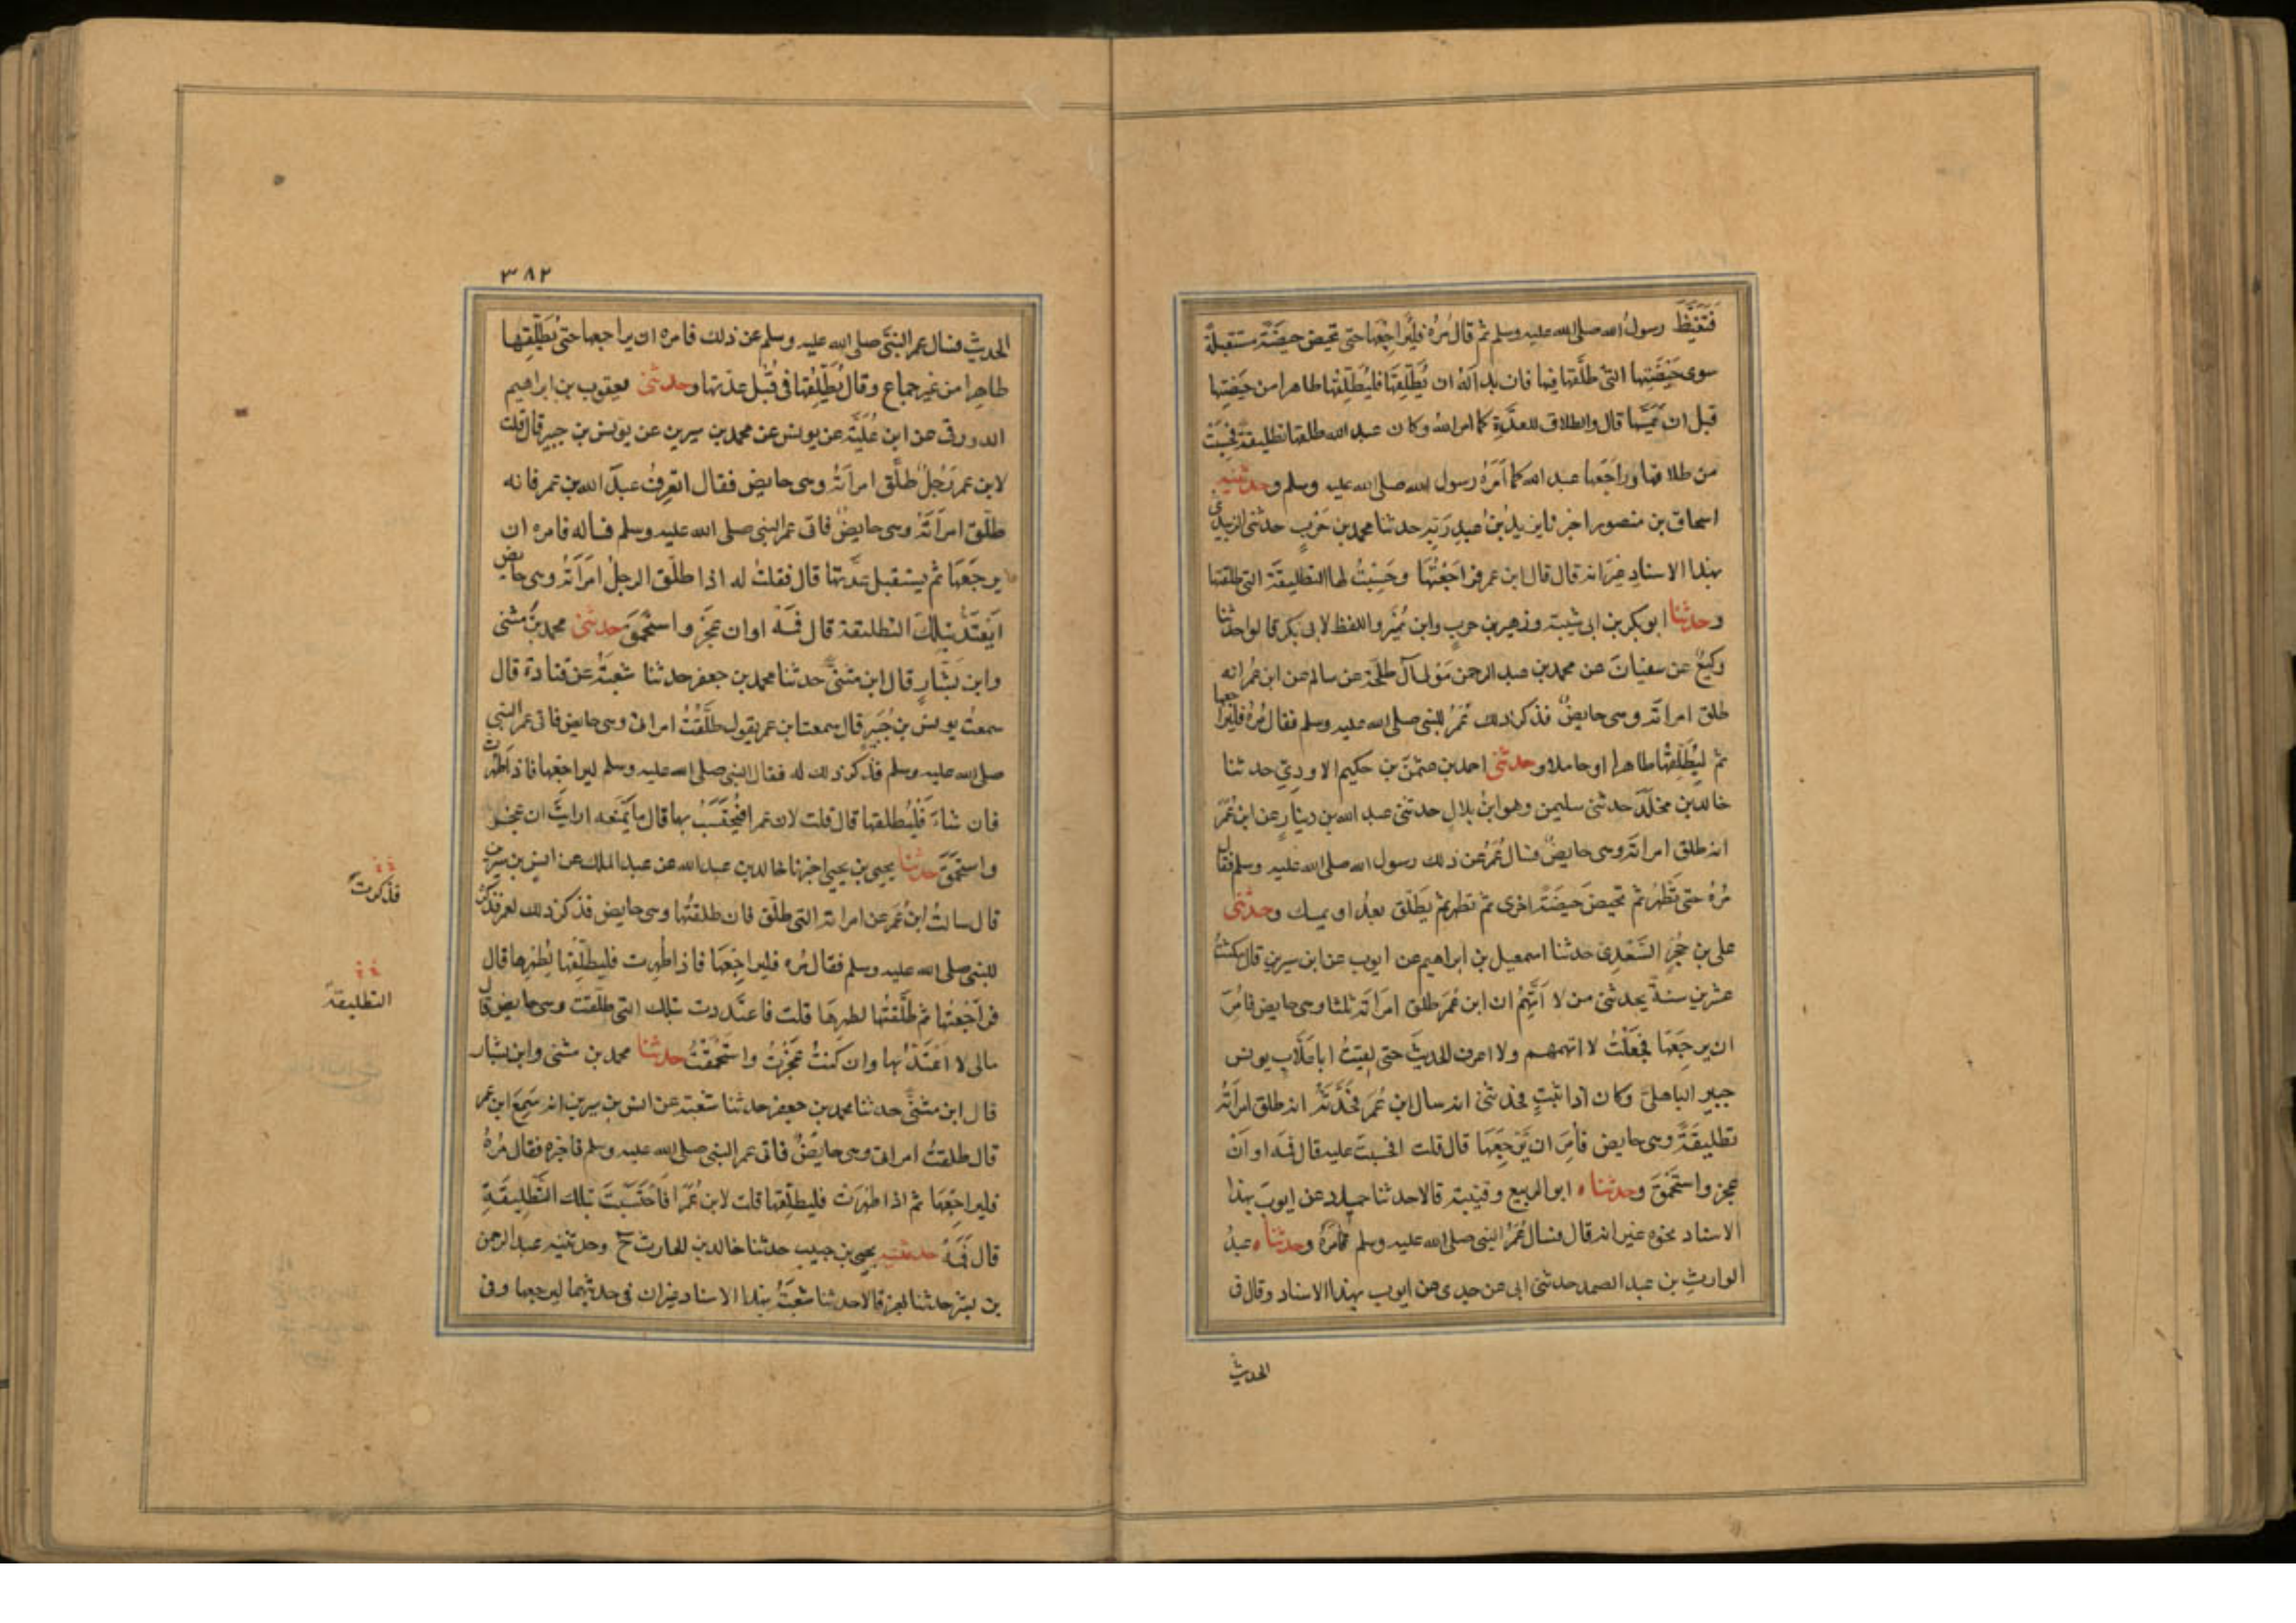 فَتَغَيَّظَ رسولُ الله صلى الله عليه وسلم ثم قال مُرْهُ فليُراجِعْها حتى تحيض حيضَةً مستقبلةً
سوى حَيْضَتِها التى طلَّقها فيها فان بدا لَهُ ان يُطَلِّقَها فليُطَلِّقْها طاهرا من حَيْضَتِها
قبل ان يَمَسَّها قال والطلاق للعدَّةِ كما امر الله وكان عبد الله طلقها تطليقة فحُسِبَتْ
من طلاقها وراجَعَها عبد الله كما اَمَرَهُ رسول الله صلى الله عليه وسلم وحدثنيه
اسحاق بن منصور اخبرنا يزيدُ بنُ عبدِ رَبِّه حدثنا محمد بن حَرْبٍ حدثنى الزبيدى
بهذا الاسنادِ غيرَ انه قال قال ابن عمر فراجَعْتُهَا وحَسِبْتُ لها التطليقَةَ التى طلقتها
وحدثنا ابو بكر بن ابى شيبة وزهير بن حرب وابن نُمَيْر واللفظ لابى بكر قالوا حدثنا
وكيعٌ عن سفيان عن محمد بن عبد الرحمن مَوْلى آل طلحَةَ عن سالم عن ابن عُمَرَ انه
طلق امراتَه وهى حايضٌ فذكر ذلك عُمَرُ للنبى صلى الله عليه وسلم فقال مُرْهُ فليُراجعها
ثم ليُطَلِّقْها طاهرا او حاملا وحدثنى احمد بن عثمن بن حكيم الاودِىّ حدثنا
خالد بن مخلَد حدثنى سليمن وهو ابنُ بلال حدثنى عبد الله بن دينار عن ابن عُمَرَ
انه طلق امراته وهى حايضٌ فسال عُمَرُ عن ذلك رسول الله صلى الله عليه وسلم فقال
مُرْهُ حتى تَطْهُرَ ثم تحيض حيضَةً اخرى ثم تطهر ثم يُطَلِّق بعدُ او يمسك وحدثنى
على بن حُجْرٍ السَّعْدِى حدثنا اسمعيل بن ابراهيم عن ايوب عن ابن سيرين قال مكثتُ
عشرين سنةً يحدثنى من لا اَتَّهِمُ ان ابن عُمَرَ طلق امراَتَه ثلثا وهى حايض فاُمِرَ
ان يرجِعَها فجَعَلْتُ لا اتهمهم ولا اعرف الحديثَ حتى لقيتُ ابا غَلَّابٍ يونس
جبير الباهلىَّ وكان ذا ثَبَتٍ فحدثنى انه سال ابن عُمَرَ فحَدَّثَهُ انه طلق امراَتَهُ
تطليقَةً وهى حايض فاُمِرَ ان يَرْجِعَهَا قال قلت افحُسِبَتْ عليه قال فمَه او انْ
عجز واستَحْمَقَ وحدثناه ابو الربيع وقتيبة قالا حدثنا حماد عن ايوبَ بهذا
الاسناد نحوه غير انه قال فسال عُمَرُ النبى صلى الله عليه وسلم فامرَهُ وحدثناه عبدُ
الوارثِ بن عبد الصمد حدثنى ابى عن جدى عن ايوب بهذا الاسناد وقال فى
الحديث
٣٨٢
الحديث فسال عمر النبىَّ صلى الله عليه وسلم عن ذلك فامره ان يراجعها حتى يُطَلِّقها
طاهِرا من غير جماع وقال يُطَلِّقُها فى قُبُل عدتها وحدثنى يعقوب بن ابراهيم
الدورقى عن ابن عُلَيَّة عن يونس عن محمد بن سيرين عن يونس بن جبير قال قلت
لابن عمر رَجُلٌ طلَّق امراَتَهُ وهى حايض فقال اتَعرِفُ عبدَ الله بن عمر فانه
طلّق امراَتَهُ وهى حايضٌ فاتى عمر النبى صلى الله عليه وسلم فساله فامره ان
يرجَعَهَا ثم يستقبل عِدَّتها قال فقلتُ له اذا طلّق الرجلُ امرَاَتَه وهى حايض
اَيَعْتَدُّ بتلك التطليقة قال فَمَهْ او ان عَجَزَ واستَحْمَقَ حدثنى محمد بن مثنى
وابن بَشَّارٍ قال ابن مثنى حدثنا محمد بن جعفر حدثنا شعبَةُ عن قتادة قال
سمعتُ يونس بن جُبَيرٍ قال سمعت ابن عمر يقول طلَّقْتُ امراتى وهى حايض فاتى عمر النبى
صلى الله عليه وسلم فذكر ذلك له فقال النبى صلى الله عليه وسلم ليراجعها فاذا طَهُرت
فان شاءَ فَلْيُطلقها قال قلت لابن عمر افتحْتَسِبُ بها قال ما يَمْنَعه ارايتَ ان عجز
واستَحْمَقَ حدثنا يحيى بن يحيى اخبرنا خالد بن عبد الله عن عبد الملك عن انس بن سيرين
قال سالتُ ابنَ عُمَرَ عن امراته التى طلَّق قال طلقتُها وهى حايض فذكر ذلك لعمر فذكرَهُ
للنبى صلى الله عليه وسلم فقال مُره فليراجِعَها فاذا طهرت فليطلِّقْها لِطُهْرها قال
فراجَعْتُها ثم طلَّقْتُها لطهرِهَا قلت فاعتددت بتلك التى طلَّقت وهى حايض قال
مالى لا اَعْتَدُّ بها وان كنتُ عَجَزْتُ واستَحْمَقْتُ حدثنا محمد بن مثنى وابن بشار
قال ابن مثنى حدثنا محمد بن جعفر حدثنا شعبة عن انس بن سيرين انه سَمِعَ ابن عمر
قال طلقتُ امراتى وهى حايِضٌ فاتى عمر النبى صلى الله عليه وسلم فاخبره فقال مُرْهُ
فليراجِعْها ثم اذا طهرَتْ فليطلِّقها قلت لابن عُمَرَ افَاحْتَسَبْتَ بتلك التَّطلِيقَةِ
قال فَمَهْ حدثنيه يحيى بن حبيب حدثنا خالد بن الحارث ح وحدثنيه عبد الرحمن
بن بشر حدثنا بهز قالا حدثنا شعبَةُ بهذا الاسناد غير ان فى حديثهما ليرجعها وفى
فذكرت
التطليقة